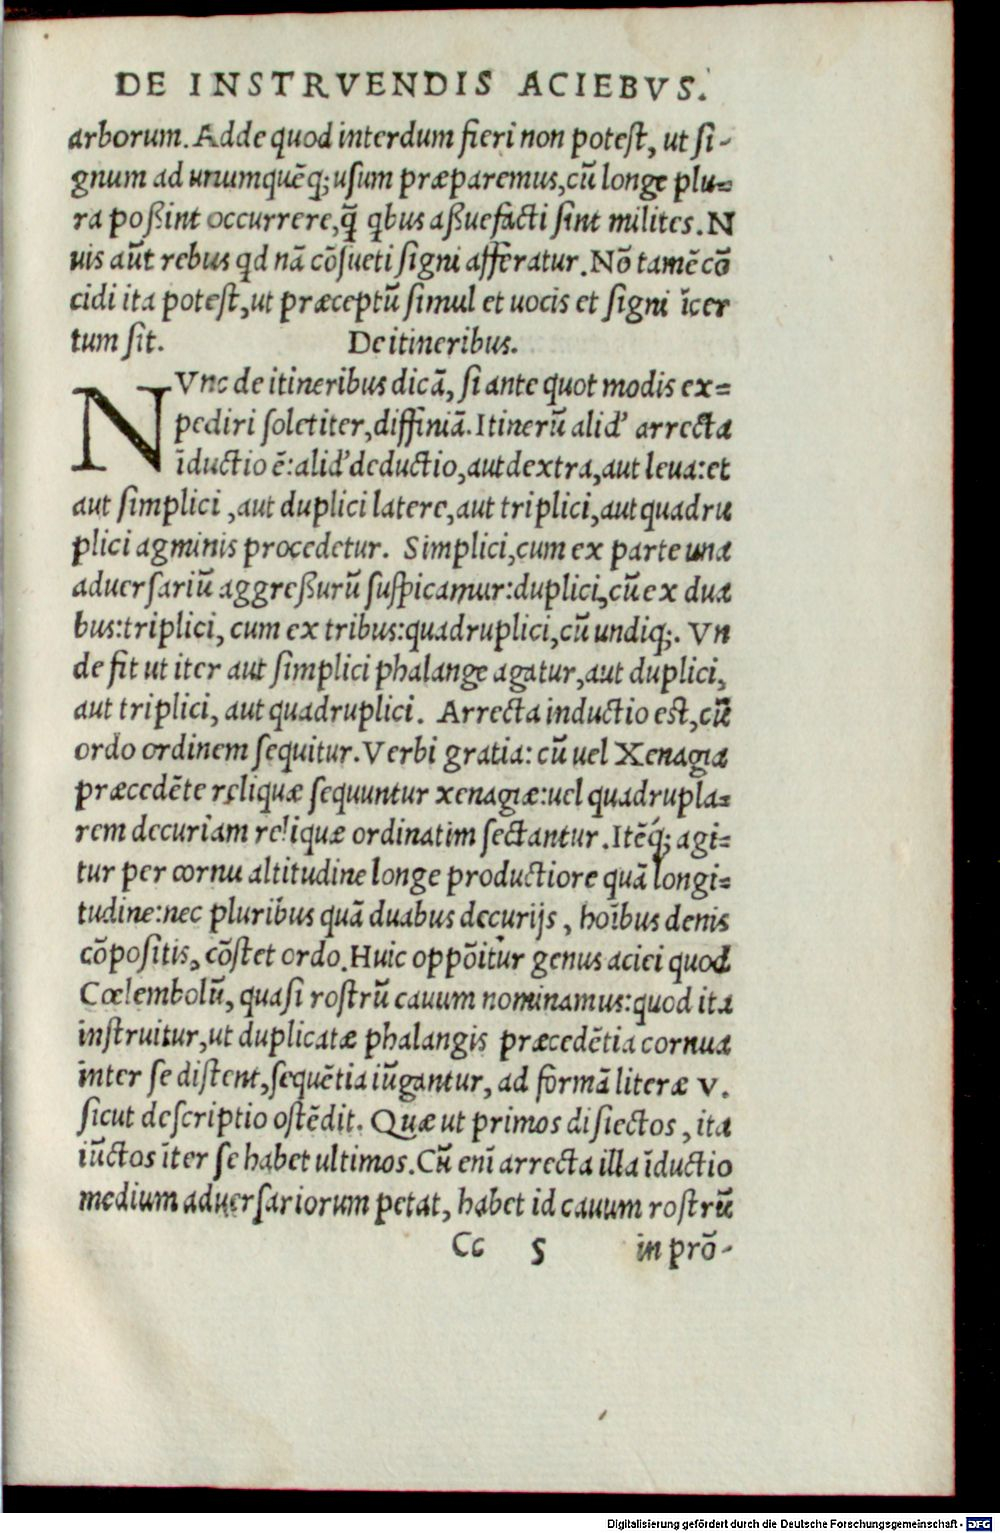 DE INSTRVENDIS ACIEBVS.
arborum. Adde quod interdum fieri non potest, ut si-
gnum ad unumquēq; usum præparemus, cū longe plu=
ra poßint occurrere, q̃ qbus aßuefacti sint milites. N
uis aūt rebus qd nā cōsueti signi afferatur. Nō tamē cō
cidi ita potest, ut præceptū simul et uocis et signi īcer
tum sit. De itineribus.
NVnc de itineribus dicā, si ante quot modis ex=
pediri solet iter, diffiniā. Itinerū alid' arrecta
īductio ē: alid' deductio, aut dextra, aut leua: et
aut simplici, aut duplici latere, aut triplici, aut quadru
plici agminis procedetur. Simplici, cum ex parte una
aduersariū aggreßurū suspicamur: duplici, cū ex dua
bus: triplici, cum ex tribus: quadruplici, cū undiq;. Vn
de fit ut iter aut simplici phalange agatur, aut duplici,
aut triplici, aut quadruplici. Arrecta inductio est, cū
ordo ordinem sequitur. Verbi gratia: cū uel Xenagia
præcedēte reliquæ sequuntur xenagiæ: uel quadrupla=
rem decuriam reliquæ ordinatim sectantur. Itēq́; agi=
tur per cornu altitudine longe productiore quā longi=
tudine: nec pluribus quā duabus decurijs, hoībus denis
cōpositis, cōstet ordo. Huic oppōitur genus aciei quod
Cœlembolū, quasi rostrū cauum nominamus: quod ita
instruitur, ut duplicatæ phalangis præcedētia cornua
inter se distent, sequētia iūgantur, ad formā literæ V.
sicut descriptio ostēdit. Quæ ut primos disiectos, ita
iūctos īter se habet ultimos. Cū enī arrecta illa īductio
medium aduersariorum petat, habet id cauum rostrū
Cc 5 in prō-
Digitalisierung gefördert durch die Deutsche Forschungsgemeinschaft - DFG